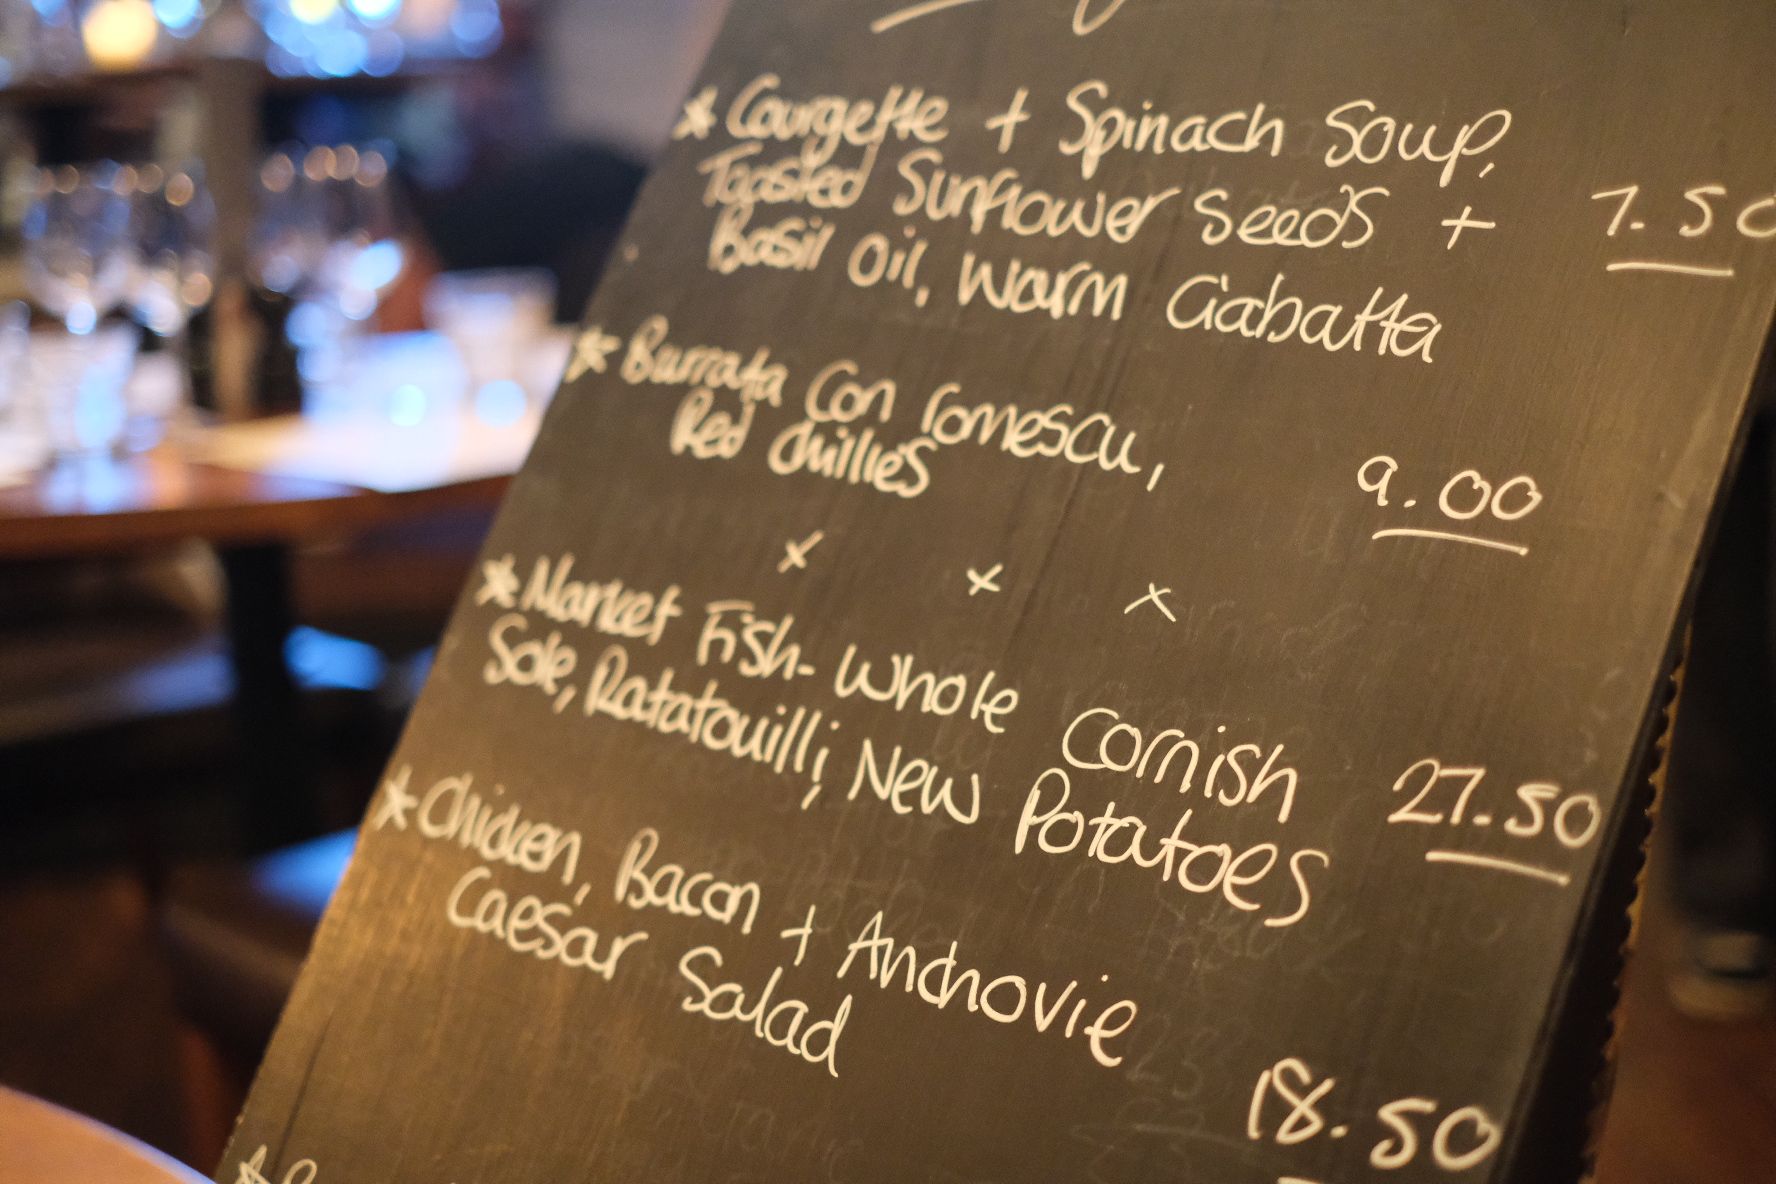 * Courgette + Spinach Soup,
Toasted Sunflower Seeds + 7.50
Basil Oil, Warm Ciabatta
* Burrata Con romescu,
Red chillies 9.00
x x x
* Market Fish - Whole Cornish
Sole, Ratatouilli, New Potatoes 27.50
* Chicken, Bacon + Anchovie
Caesar Salad 18.50